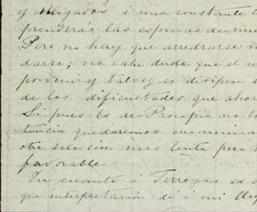 y obligados á una constante
prenderás las espinas
Pero no hay que arredrarse
darse; no cabe duda que el
porvenir y talvez se disipen
de las dificultades que ahor
Si pues Es de Procopio no
tancia quedaremos
otra solucion mas lenta pero
favorable.
En cuanto á Terrazas
que interpretacion dé á mi